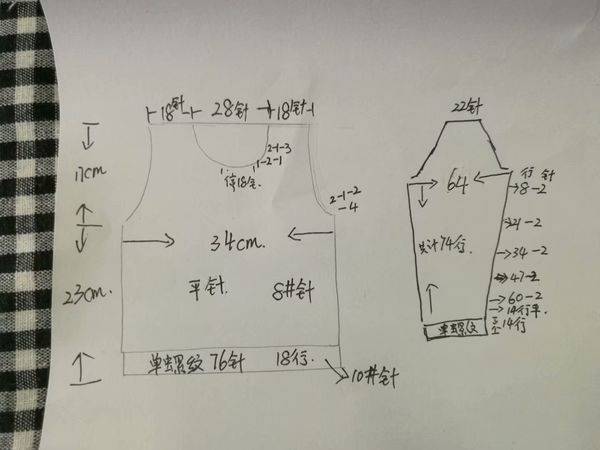 18针 28针 18针
2-1-3
1-2-1
停18针.
17cm
2-1-2
-4
34cm.
23cm.
平针. 8#针
单螺纹 76针 18行.
10#针
22针
行 针
64
8-2
21-2
共计74行.
34-2
47-2
60-2
14行平.
单螺纹
14行